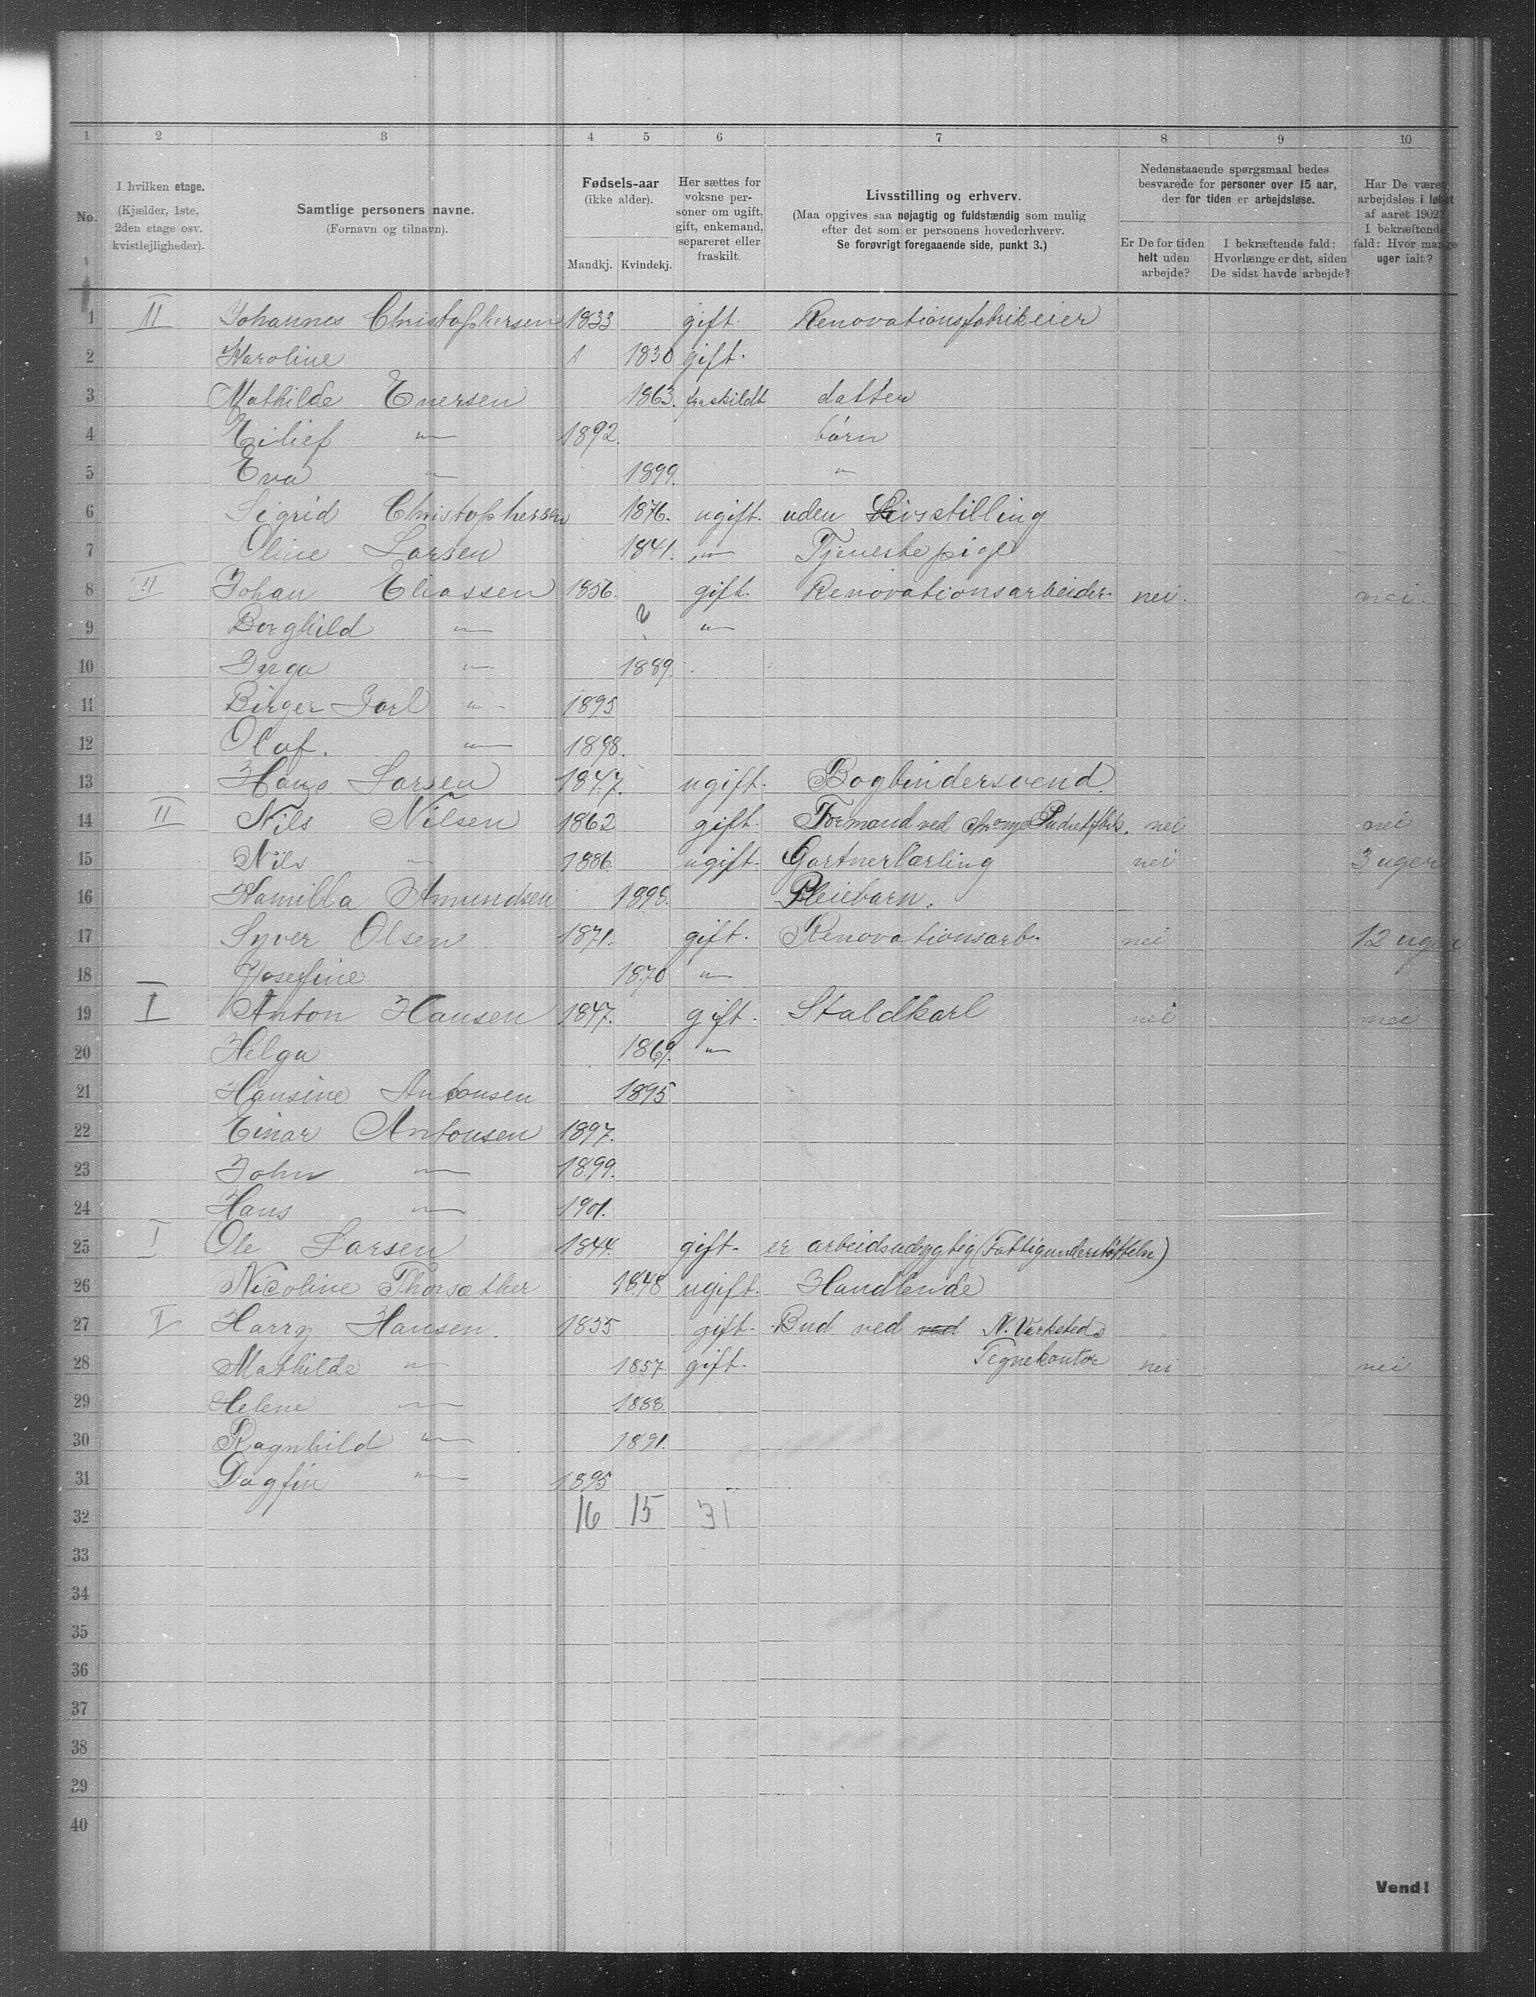 1 2 3 4 5 6 7 8 9 10
No.
I hvilken etage.
(Kjælder, 1ste,
2den etage osv.
kvistlejligheder).
Samtlige personers navne.
(Fornavn og tilnavn).
Fødsels-aar
(ikke alder).
Mandkj. Kvindekj.
Her sættes for
voksne per-
soner om ugift,
gift, enkemand,
separeret eller
fraskilt.
Livsstilling og erhverv.
(Maa opgives saa nøjagtig og fuldstændig som mulig
efter det som er personens hovederhverv.
Se forøvrigt foregaaende side, punkt 3.)
Nedenstaaende spørgsmaal bedes
besvarede for personer over 15 aar,
der for tiden er arbejdsløse.
Er De for tiden
helt uden
arbejde?
I bekræftende fald:
Hvorlænge er det, siden
De sidst havde arbejde?
Har De været
arbejdsløs i løbet
af aaret 1902?
I bekræftende
fald: Hvor mange
uger ialt?
1 II Johannes Christophersen 1833 gift. Renovationsfabrikeier
2 Karoline 1 1830 gift.
3 Mathilde Enersen 1863. fraskildt datter
4 Eilief " 1892. børn
5 Eva " 1899. "
6 Sigrid Christophersen 1876. ugift. uden Livsstilling
7 Oline Larsen 1841. " Tjenestepige
8 II Johan Eliassen 1856. gift. Renovationsarbeider. nei. nei.
9 Borghild " ? "
10 Inga " 1889.
11 Birger Jarl " 1895
12 Olaf. " 1898.
13 Hans Larsen 1847. ugift. Bogbindersvend.
14 II Nils Nilsen 1862 gift. Formand ved nei nei
15 Nils " 1886. ugift. Gartnerlærling nei 3 uger
16 Kamilla Amundsen 1898. Pleiebarn.
17 Syver Olsen 1871. gift. Renovationsarb. nei 12 uger
18 Josefine 1870 "
19 I Anton Hansen 1847. gift. Staldkarl nei nei
20 Helga 1869. "
21 Hansine Antonsen 1895
22 Einar Antonsen 1897.
23 John " 1899.
24 Hans " 1901.
25 I Ole Larsen 1844. gift. er arbeidsudygtig (Fattigunderstøttelse)
26 Nicoline Thorsæther 1848 ugift. Handlende
27 I Harry Hansen. 1855 gift. Bud ved ved N. Værksteds
28 Mathilde " 1857. gift. Tegnekontor nei nei
29 Helene " 1888.
30 Ragnhild " 1891.
31 Dagfin " 1895
32 16 15 31
33
34
35
36
37
38
39
40
Vend!